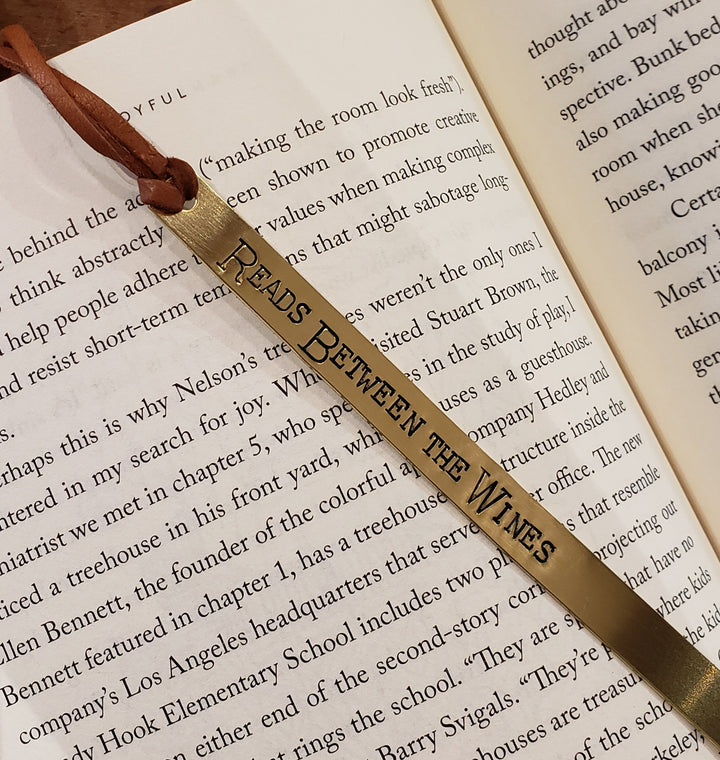 OYFUL
(“making the room look fresh”).
behind the een shown to promote creative
think abstractly values when making complex
help people adhere ns that might sabotage long-
nd resist short-term
s. es weren’t the only ones I
rhaps this is why Nelson’s isited Stuart Brown, the
ntered in my search for joy. in the study of play, I
hiatrist we met in chapter 5, who uses as a guesthouse.
ticed a treehouse in his front yard, ompany Hedley and
Ellen Bennett, the founder of the colorful tructure inside the
Bennett featured in chapter 1, has a treehouse office. The new
company’s Los Angeles headquarters that that resemble
dy Hook Elementary School includes two projecting out
n either end of the second-story that have no
rings the school. “They are where kids
Barry Svigals. “They’re the kid
houses are
of the
READS BETWEEN THE WINES
thought
ings, and bay
spective. Bunk bed
also making
room when
house,
Certa
balcony
Most
takin